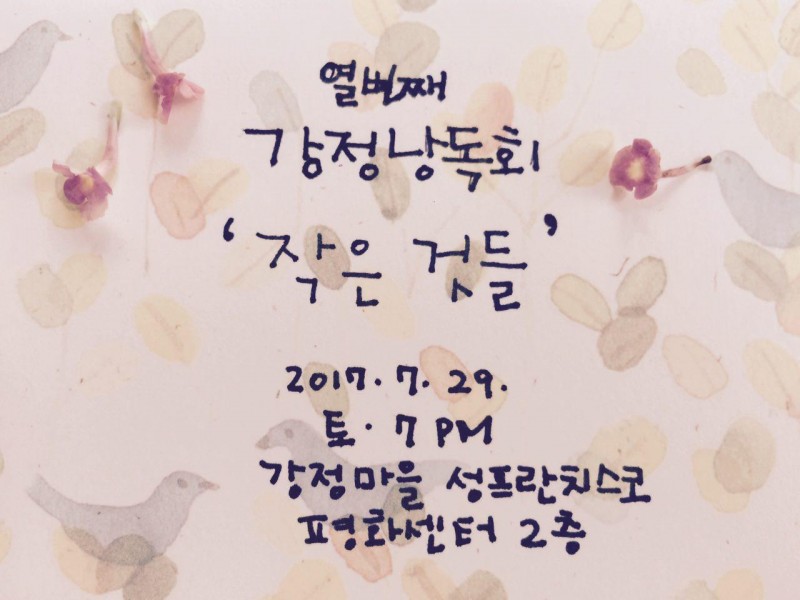 열번째
강정낭독회
‘작은 것들’
2017. 7. 29.
토. 7 PM
강정마을 성프란치스코
평화센터 2층